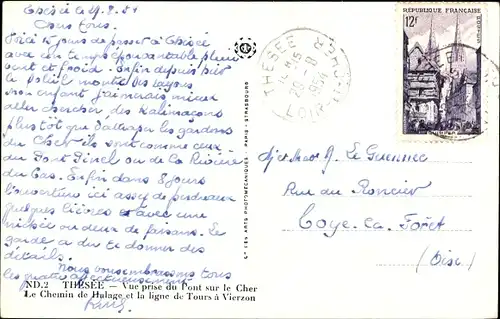 Thésée le 29.8.54
Chers tous.
Voici 15 jours de passer à Thésée
avec un temps épouvantable pluie
vent et froid. Enfin depuis hier
le soleil montre ses rayons
Mon enfant j'aimerais mieux
aller chercher des
plustôt que d'attraper les gardons
du Cher ils sont comme ceux
du Pont Pinel ou de la Rivière
du Bas. Enfin dans 8 jours
l'ouverture ici assez de perdreaux
quelques lièvres et avec une
nichée ou deux de faisans. Le
garde a du te donner des
détails.
Nous vous embrassons tous
les quatre affectueusement
ND.2 THÉSÉE — Vue prise du Pont sur le Cher
Le Chemin de Halage et la ligne de Tours à Vierzon
Cie DES ARTS PHOTOMÉCANIQUES - PARIS - STRASBOURG
THÉSÉE
1954
RÉPUBLIQUE FRANÇAISE
12f
POSTES
QUIMPER
Le Guennec
Rue du Poncier
Coye-la-Forêt
(Oise)